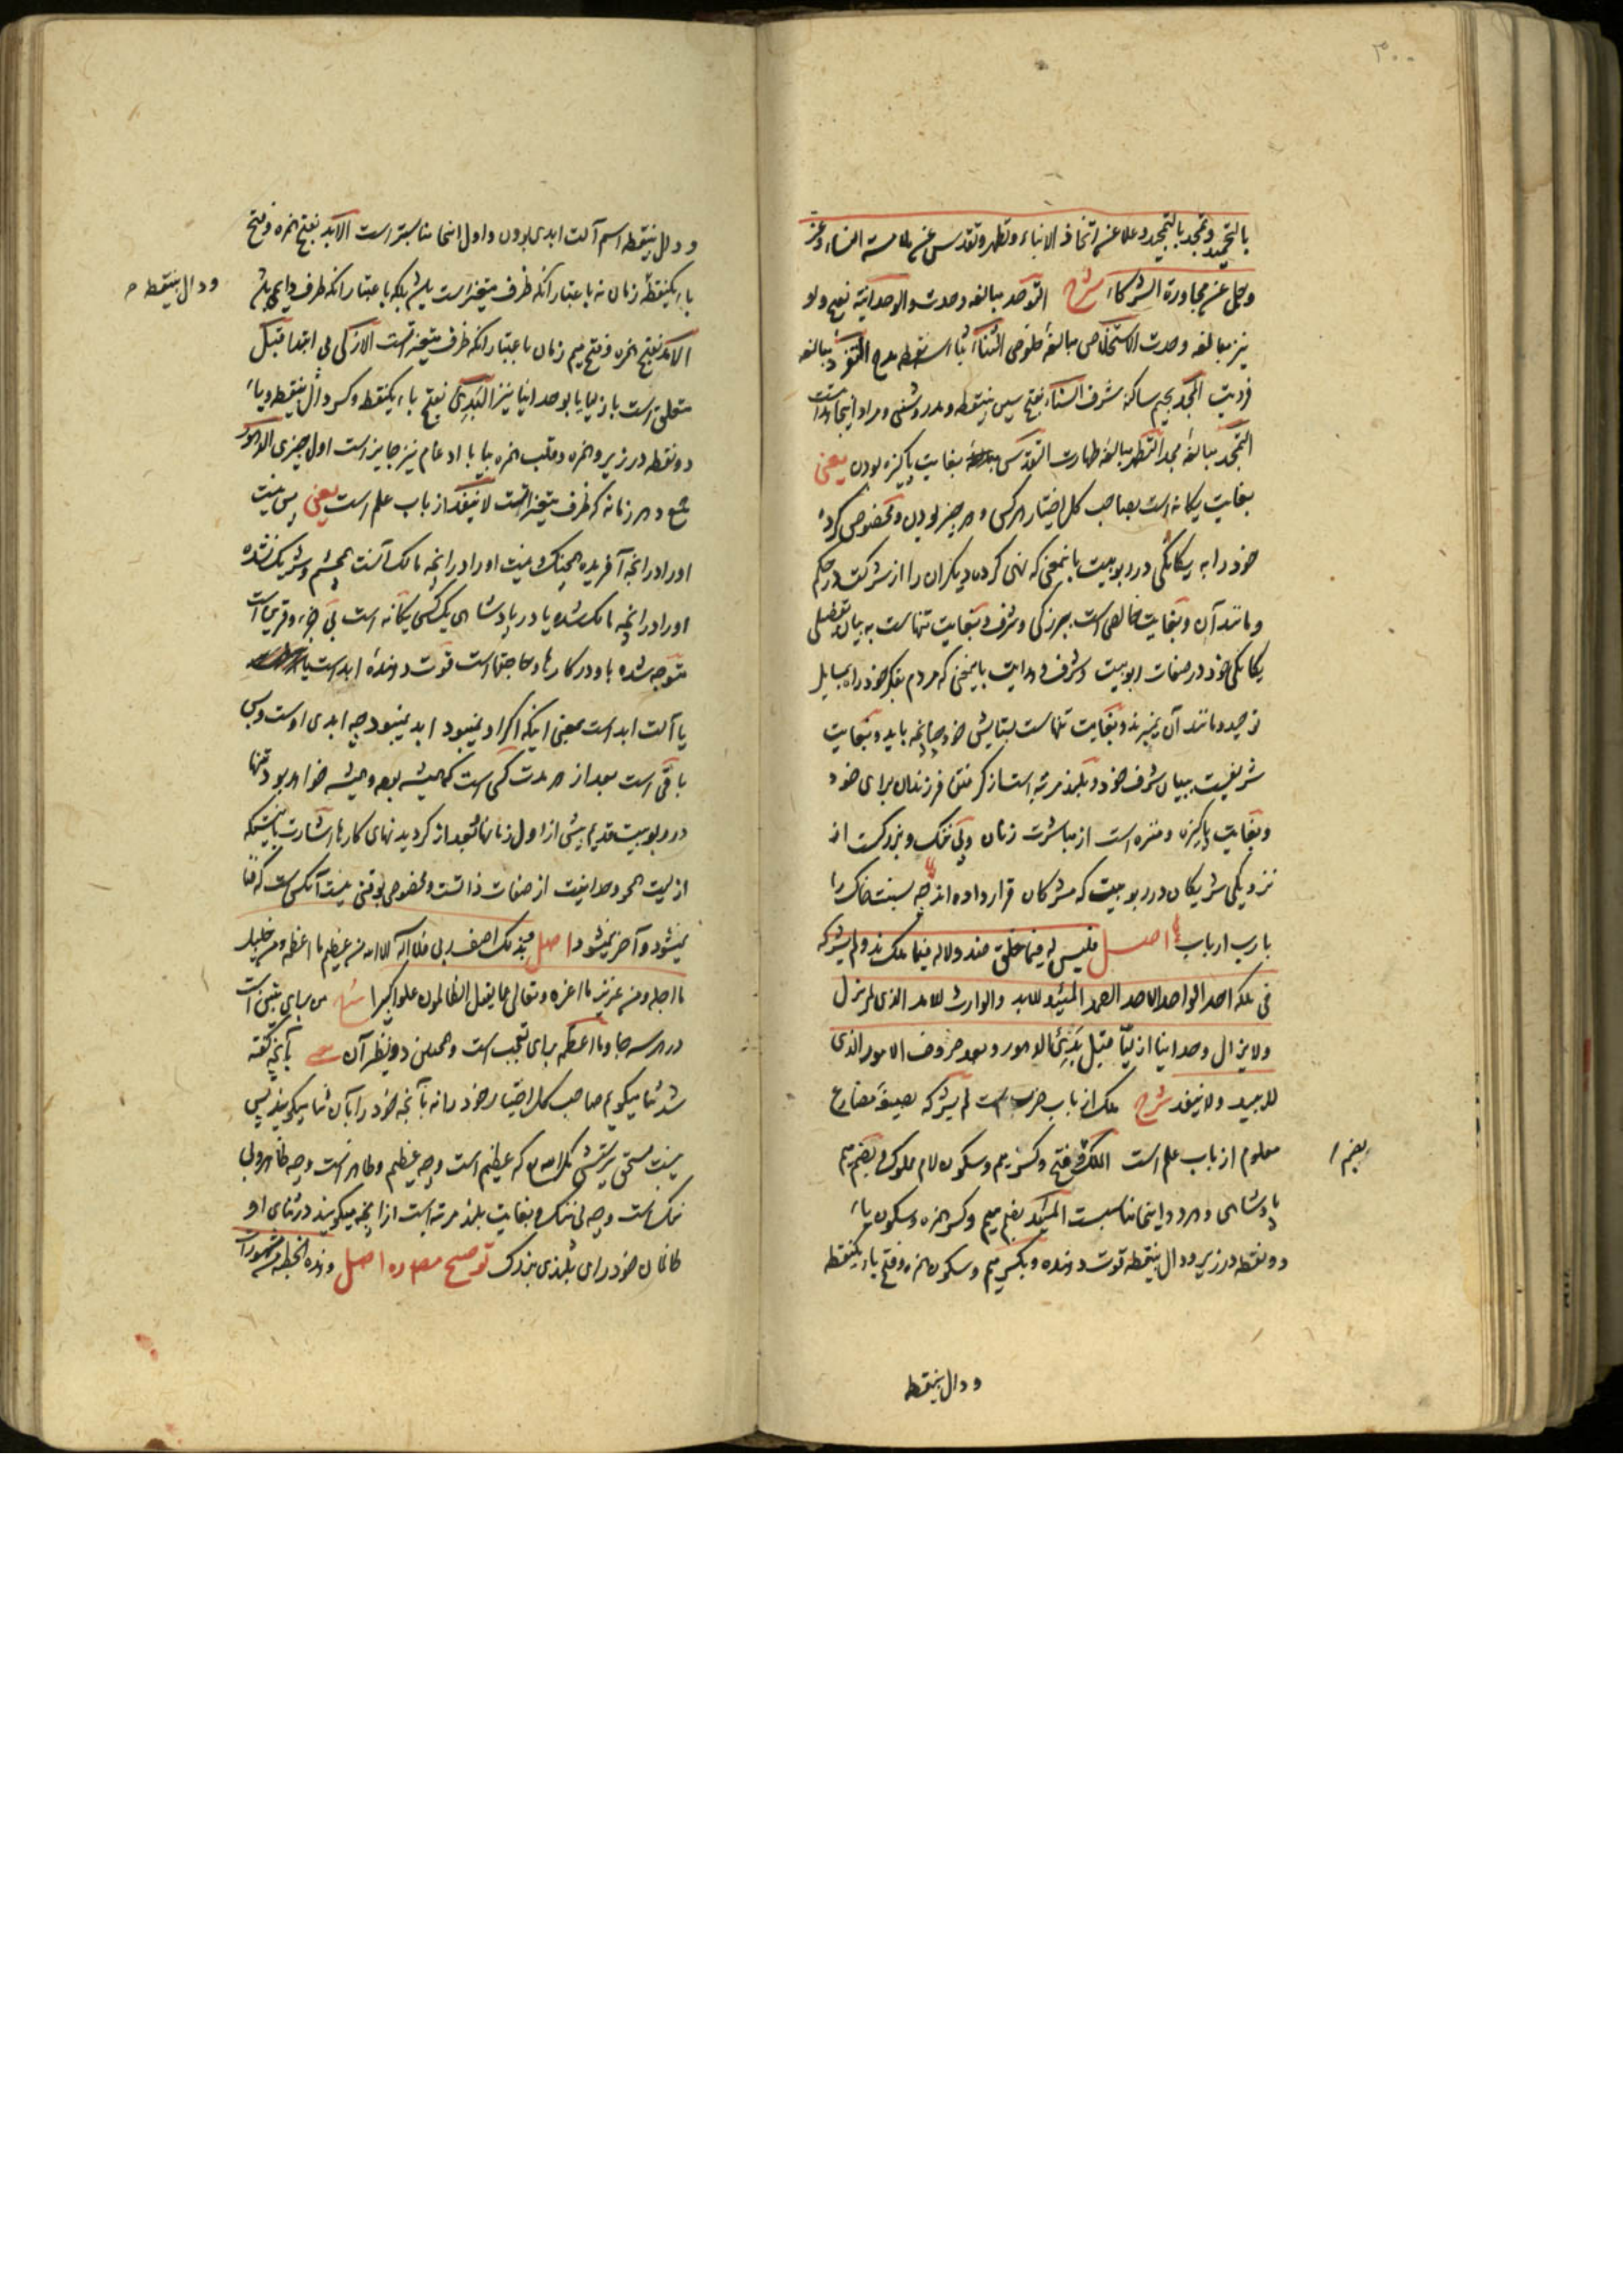 ۳۰۰
بالتحمید و تمجد بالتمجید و علا عن اتخاذ الابناء و تطهر و تقدس عن ملامسة النساء و عز
و جل عن مجاورة الشرکاء شرح التوحد مبالغه وحدت و الوحدانیة بفتح واو
نیز مبالغه وحدت الاستخلاص مبالغهٔ خلوص الثناء مدح التفرد مبالغه
فردیت المجد بجیم ساکنه شرف السناء بفتح سین بینقطه و مد روشنی و مراد اینجا
التمجد مبالغه مجد التطهر مبالغه طهارت التقدس بغایت پاکیزه بودن یعنی
بغایت یگانه است بصاحب کل اختیار هر کس و هر چیز بودن و مخصوص کرده
خود را به یگانگی در ربوبیت بانمعنی که نهی کرده دیگران را از شرکت در حکم
و مانند آن و بغایت خالص است ببزرگی و شرف و بغایت تنهاست به بیان تفصیلی
یگانگی خود در صفات ربوبیت و شرف هدایت بایمعنی که مردم بفکر خود راه بمسایل
توحید و مانند آن نمیبرند و بغایت تنهاست بستایش خود چنانچه باید و بغایت
شریفست ببیان شرف خود و بلند مرتبه است از گرفتن فرزندان برای خود
و بغایت پاکیزه و منزه است از مباشرت زنان و بی ننگ و بزرگست از
نزدیکی شریکان در ربوبیت که مشرکان قرار داده اند چه نسبت خاک را
با رب ارباب اصل فلیس له فیما خلق ضد و لا له فیما ملک ند و لم یشرکه
فی ملکه احد الواحد الاحد الصمد المبید للابد و الوارث للامد الذی لم یزل
و لا یزال وحدانیا ازلیا قبل بدیء الدهور و بعد صروف الامور الذی
لا یبید و لا ینفد شرح ملک از باب ضرب است لم یشرکه بصیغهٔ مضارع
معلوم از باب علم است الملک بفتح و کسر میم و سکون لام مملوک و بضم میم
بضم /
پادشاهی و هر دو اینجا مناسبست المبید بضم میم و کسر همزه و سکون یاء
دو نقطه در زیر و دال بینقطه قوت دهنده و بکسر میم و سکون همزه و فتح باء یکنقطه
و دال بینقطه
و دال بینقطه اسم آلت ابدی بودن و اول اینجا مناسبتر است الابد بفتح همزه و فتح
باء یکنقطه زمان نه باعتبار آنکه ظرف متغیر است بلکه باعتبار آنکه ظرف دایمی
ودال بینقطه
الامد بفتح همزه و فتح میم زمان باعتبار آنکه ظرف متغیر است الازلی بی ابتدا قبل
متعلق است بازلیا یا بوحدانیا نیز البدیء بفتح باء یکنقطه و کسر دال بینقطه و یاء
دو نقطه در زیر و همزه و قلب همزه بیا با ادغام نیز جایز است اول چیزی الدهور
جمع دهر زمانه که ظرف متغیر است لا ینفد از باب علم است یعنی پس نیست
او را در آنچه آفریده و نیست او را در آنچه مالک آنست و شریک نشده
او را در آنچه مالک شده یا در پادشاهی یکی کسی یگانه است بی جزء و قرین است
متوجه شده باو در کارها و حاجتهاست قوت دهندهٔ ابد است
یا آلت ابد است بمعنی اینکه اگر او نمیبود ابد نمیبود چه ابدی اوست و بس
باقی است بعد از هر مدت کسی است که همیشه بوده و همیشه خواهد بود تنها
در ربوبیت قدیم پیش از اول زمانها و بعد از گردیدنهای کارها اشارت باینستکه
ازلیت و وحدانیت از صفات ذاتست و مخصوص بوقتی نیست آنکسی است که فنا
نمیشود و آخر نمیشود اصل بذلک اصف ربی فلا اله الا الله من عظیم ما اعظمه و من جلیل
ما اجله و من عزیز ما اعزه و تعالی عما یقول الظالمون علوا کبیرا شرح من برای تبیین است
در هر سه جا و ما اعظمه برای تعجب است و همچنین دو نظیر آن یعنی بآنچه گفته
شد ثنا میگویم صاحب کل اختیار خود را نه بآنچه خود رایان ثنا میگویند پس
نیست مستحق پرستش مگر الله که عظیم است و چه عظیم و ظاهر است و چه ظاهر و بی
ننگ است و چه بی ننگ و بغایت بلند مرتبه است از آنچه میگویند در ثنای او
ظالمان خود رای بلندی بزرگ توضیح اصل و هذه الخطبة من مشهورات